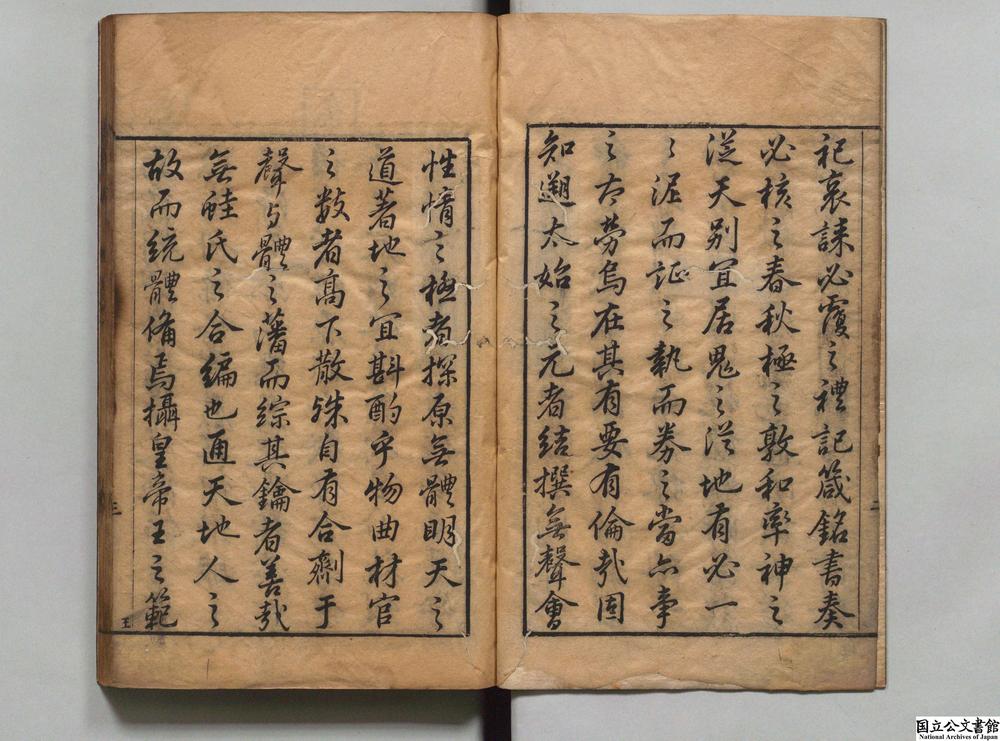 祀哀誄必覆之禮記箴銘書奏
必核之春秋極之敦和率神之
從天別宜居鬼之從地有必一
之泥而証之執而券之當亦事
之太勞烏在其有要有倫哉固
知遡太始之元者結撰無聲會
性情之極者探原無體明天之
道著地之宜斟酌乎物曲材官
之數者高下散殊自有合劑于
聲与體之藩而綜其鑰者善哉
無鮭氏之合編也通天地人之
故而統體備焉攝皇帝王之範
二
三
王
国立公文書館
National Archives of Japan